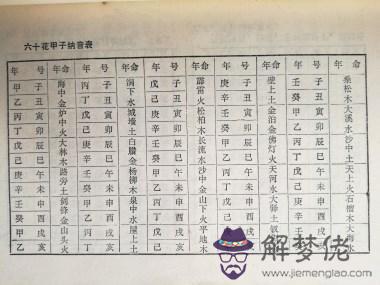 六十花甲子纳音表
年 号 命 年 号 命 年 号 命 年 号 命 年 号 命
甲乙丙丁戊己庚辛壬癸甲乙
子丑寅卯辰巳午未申酉戌亥
海中金炉中火大林木路旁土剑锋金山头火
丙丁戊己庚辛壬癸甲乙丙丁
子丑寅卯辰巳午未申酉戌亥
涧下水城墙土白腊金杨柳木泉中水屋上土
戊己庚辛壬癸甲乙丙丁戊己
子丑寅卯辰巳午未申酉戌亥
霹雷火松柏木长流水沙中金山下火平地木
庚辛壬癸甲乙丙丁戊己庚辛
子丑寅卯辰巳午未申酉戌亥
壁上土金泊金佛灯火天河水
壬癸甲乙丙丁戊己庚辛壬癸
子丑寅卯辰巳午未申酉戌亥
桑松木大溪水沙中土天上火石榴木大海水
解梦佬
www.jiemenglao.com